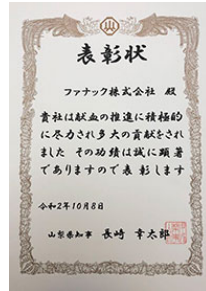 表彰状
ファナック株式会社 殿
貴社は献血の推進に積極的
に尽力され多大の貢献をされ
ました その功績は誠に顕著
でありますので表彰します
令和2年10月8日
山梨県知事 長崎 幸太郎